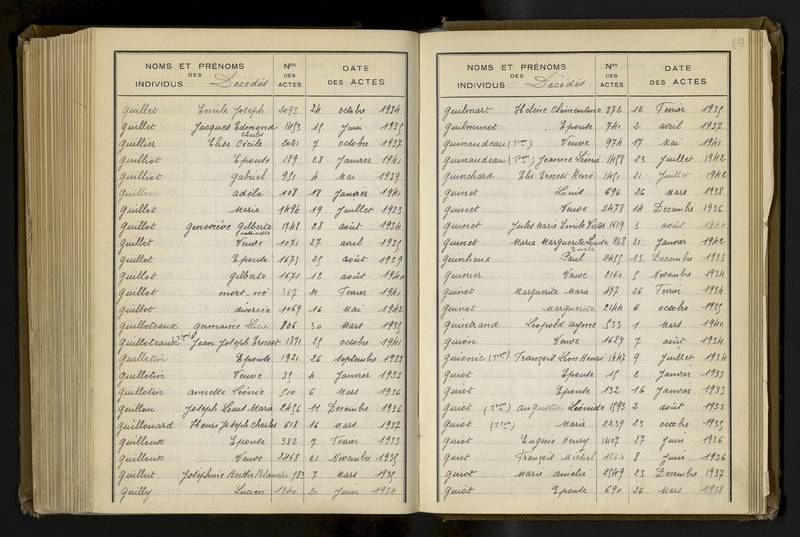 NOMS ET PRÉNOMS
DES Décédés
INDIVIDUS
Nos DES ACTES
DATE DES ACTES
Guillet Emile Joseph 2093 24 octobre 1934
Guillet Jacques Edmond Charles 1453 15 Juin 1935
Guillier Elise Cécile 2021 7 octobre 1937
Guilliot Epouse 189 28 Janvier 1941
Guilliot Gabriel 951 4 Mai 1939
adèle 108 18 Janvier 1941
Guillot Marie 1494 19 Juillet 1933
Guillot Geneviève Gilberte 1748 28 août 1934
Guillot Veuve 1071 27 avril 1935
Guillot Epouse 1673 25 août 1939
Guillot Gilberte 1671 12 août 1940
Guillot mort-né 367 21 Fevrier 1941
Guillot divorcée 1069 16 Mai 1942
Guilloteaux Germaine 806 30 Mars 1935
Guilloteaux Jean Joseph Ernest 1891 25 octobre 1941
Guilletin Epouse 1921 26 septembre 1933
Guillotin Veuve 35 4 Janvier 1932
Guillotin annette Léonie 510 6 Mars 1936
Guillou Joseph Louis Marie 2456 11 Decembre 1936
Guillouard Henri Joseph Charles 618 16 Mars 1937
Guilloux Epouse 382 7 Fevrier 1933
Guilloux Veuve 2468 21 Novembre 1935
Guillut Joséphine Berthe 983 7 Mars 1935
Guilly Lucien 1340 2 Juin 1934
893
NOMS ET PRÉNOMS
DES Décédés
INDIVIDUS
Nos DES ACTES
DATE DES ACTES
Guilmart Hélène Clémentine 372 12 Fevrier 1935
Guilminot Epouse 741 2 avril 1937
Guinaudeau Veuve 974 17 Mai 1941
Guinaudeau Jeanne Léonie 1458 23 Juillet 1942
Guinchard Elie Ernest René 1451 21 Juillet 1942
Guinet Louis 696 26 Mars 1938
Guinet Veuve 2478 14 Decembre 1936
Guinot Jules Marie Emile 1619 3 août
Guinot Marie Marguerite 268 31 Janvier 1942
Guinheux Paul 2455 13 Decembre 1933
Guinier Veuve 2160 5 Novembre 1934
Guinot Marguerite Marie 497 26 Fevrier 1934
Guinot Marguerite 2144 6 octobre 1935
Guintrand Léopold 533 1 Mars 1940
Guion Veuve 1627 7 août 1934
Guionic François Léon Henri 1647 9 Juillet 1934
Guiot Epouse 15 2 Janvier 1933
Guiot Epouse 132 16 Janvier 1933
Guiot Léonide 1593 2 août 1933
Guiot Marie 2239 23 octobre 1935
Guiot Eugène Henry 1407 27 Juin 1936
Guiot François Michel 1264 8 Juin 1936
Guiot Marie amélie 2549 23 Decembre 1937
Guiot Epouse 690 26 Mars 1938